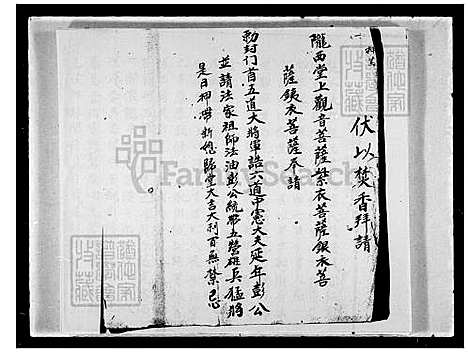 伏以焚香拜請
隴西堂上觀音菩薩紫衣菩薩銀衣菩
薩鉄衣菩薩奉請
勅封门首五道大將軍誥六道中憲大夫延年彭公
並請法家祖師法油彭公統帶五營雄兵猛將
是日神 新 大吉大利百無禁忌
FamilySearch